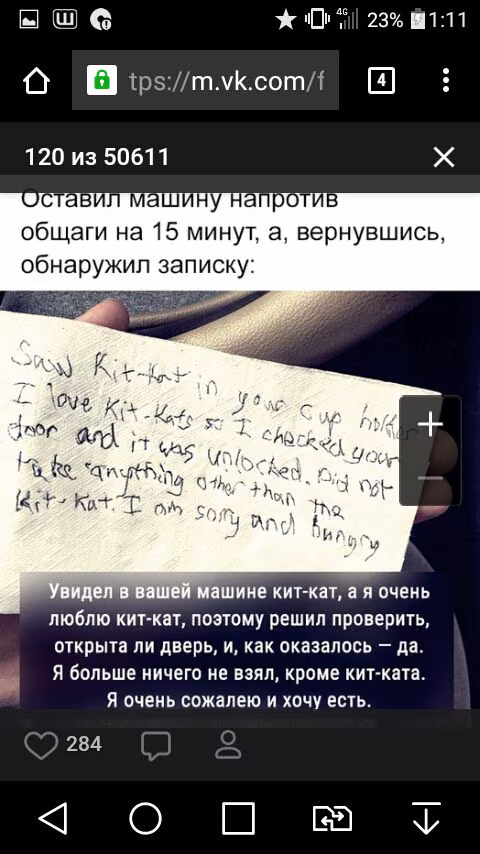 4G
23%
1:11
tps://m.vk.com/f
4
120 из 50611
Оставил машину напротив
общаги на 15 минут, а, вернувшись,
обнаружил записку:
Saw Kit-Kat in your cup holder
I love Kit-Kats so I checked your
door and it was unlocked. Did not
take anything other than the
Kit-Kat. I am sorry and hungry
+
−
Увидел в вашей машине кит-кат, а я очень
люблю кит-кат, поэтому решил проверить,
открыта ли дверь, и, как оказалось — да.
Я больше ничего не взял, кроме кит-ката.
Я очень сожалею и хочу есть.
284